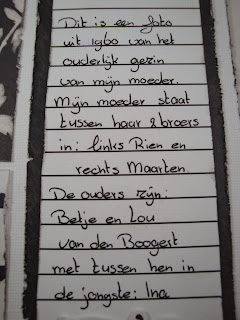 Dit is een foto
uit 1960 van het
ouderlijk gezin
van mijn moeder.
Mijn moeder staat
tussen haar 2 broers
in: links Rien en
rechts Maarten.
De ouders zijn:
Betje en Lou
van den Boogert
met tussen hen in
de jongste: Ina